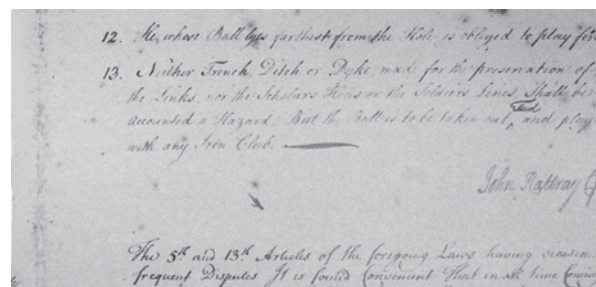 12. He whose Ball lyes farthest from the Hole is obliged to play firs
13. Neither Trench, Ditch or Dyke, made for the preservation of
the Links, nor the Scholars Holes or the Soldiers Lines, Shall be
accounted a Hazard. But the Ball is to be taken out, Teed and play
with any Iron Club.
John Rattray
The 5th and 13th Articles of the foregoing Laws having occasion
frequent Disputes It is found Convenient That in all time